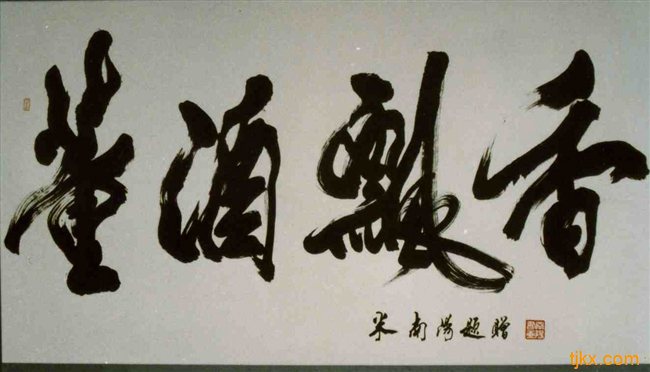 董酒飘香
米南阳题赠
tjkx.com